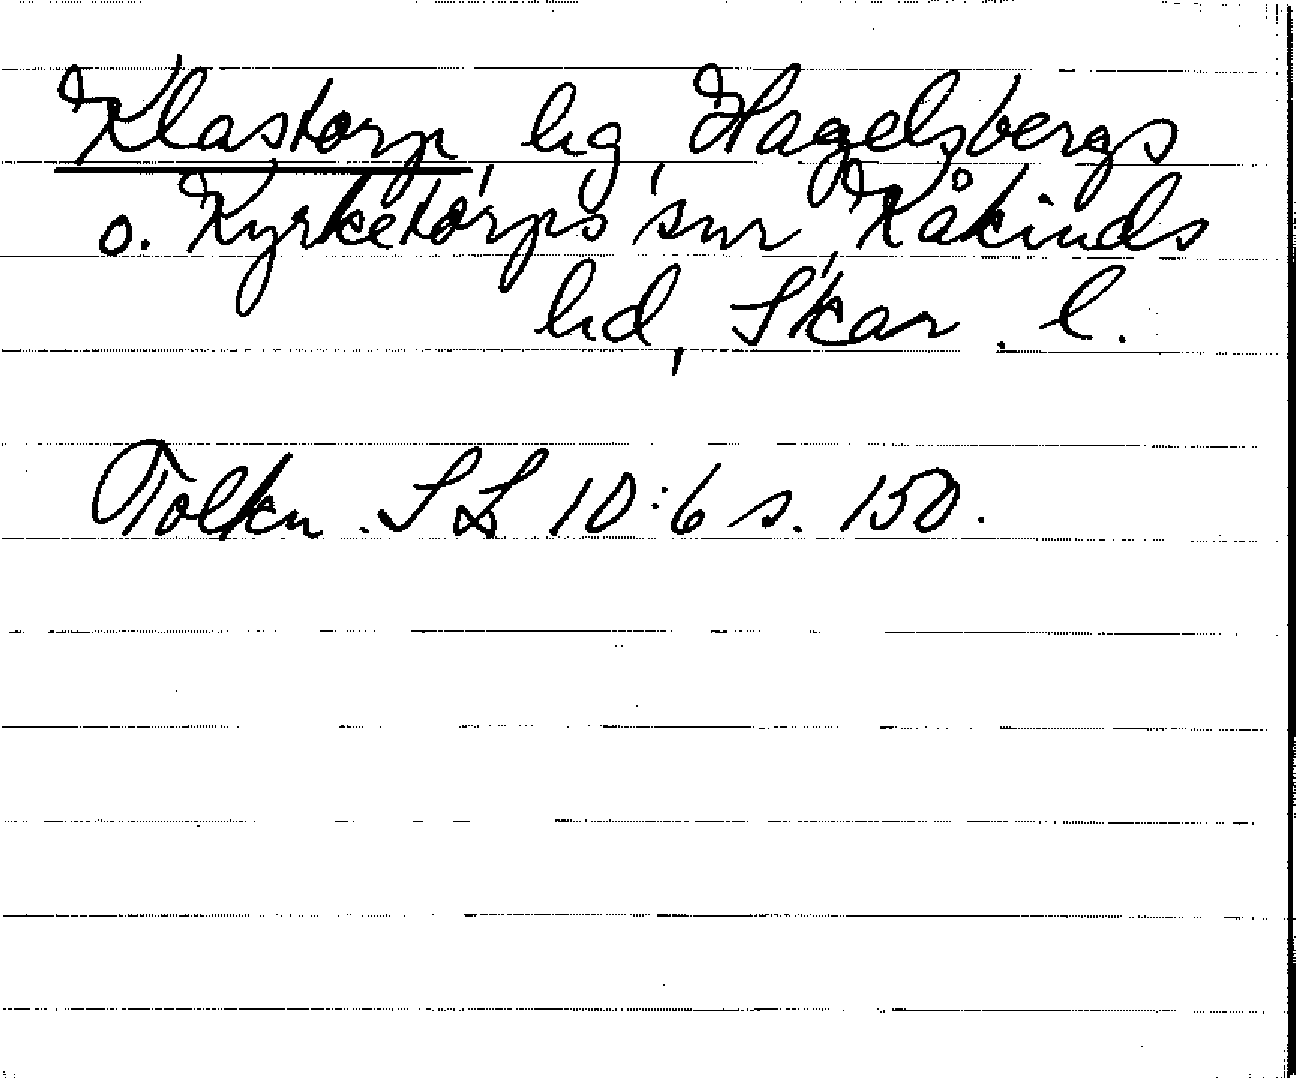 Klastorp, hg, Hagelsbergs
o. Kyrketorps snr, Kåkinds
hd, Skar. l.
Tolkn. SL 10:6 s. 150.